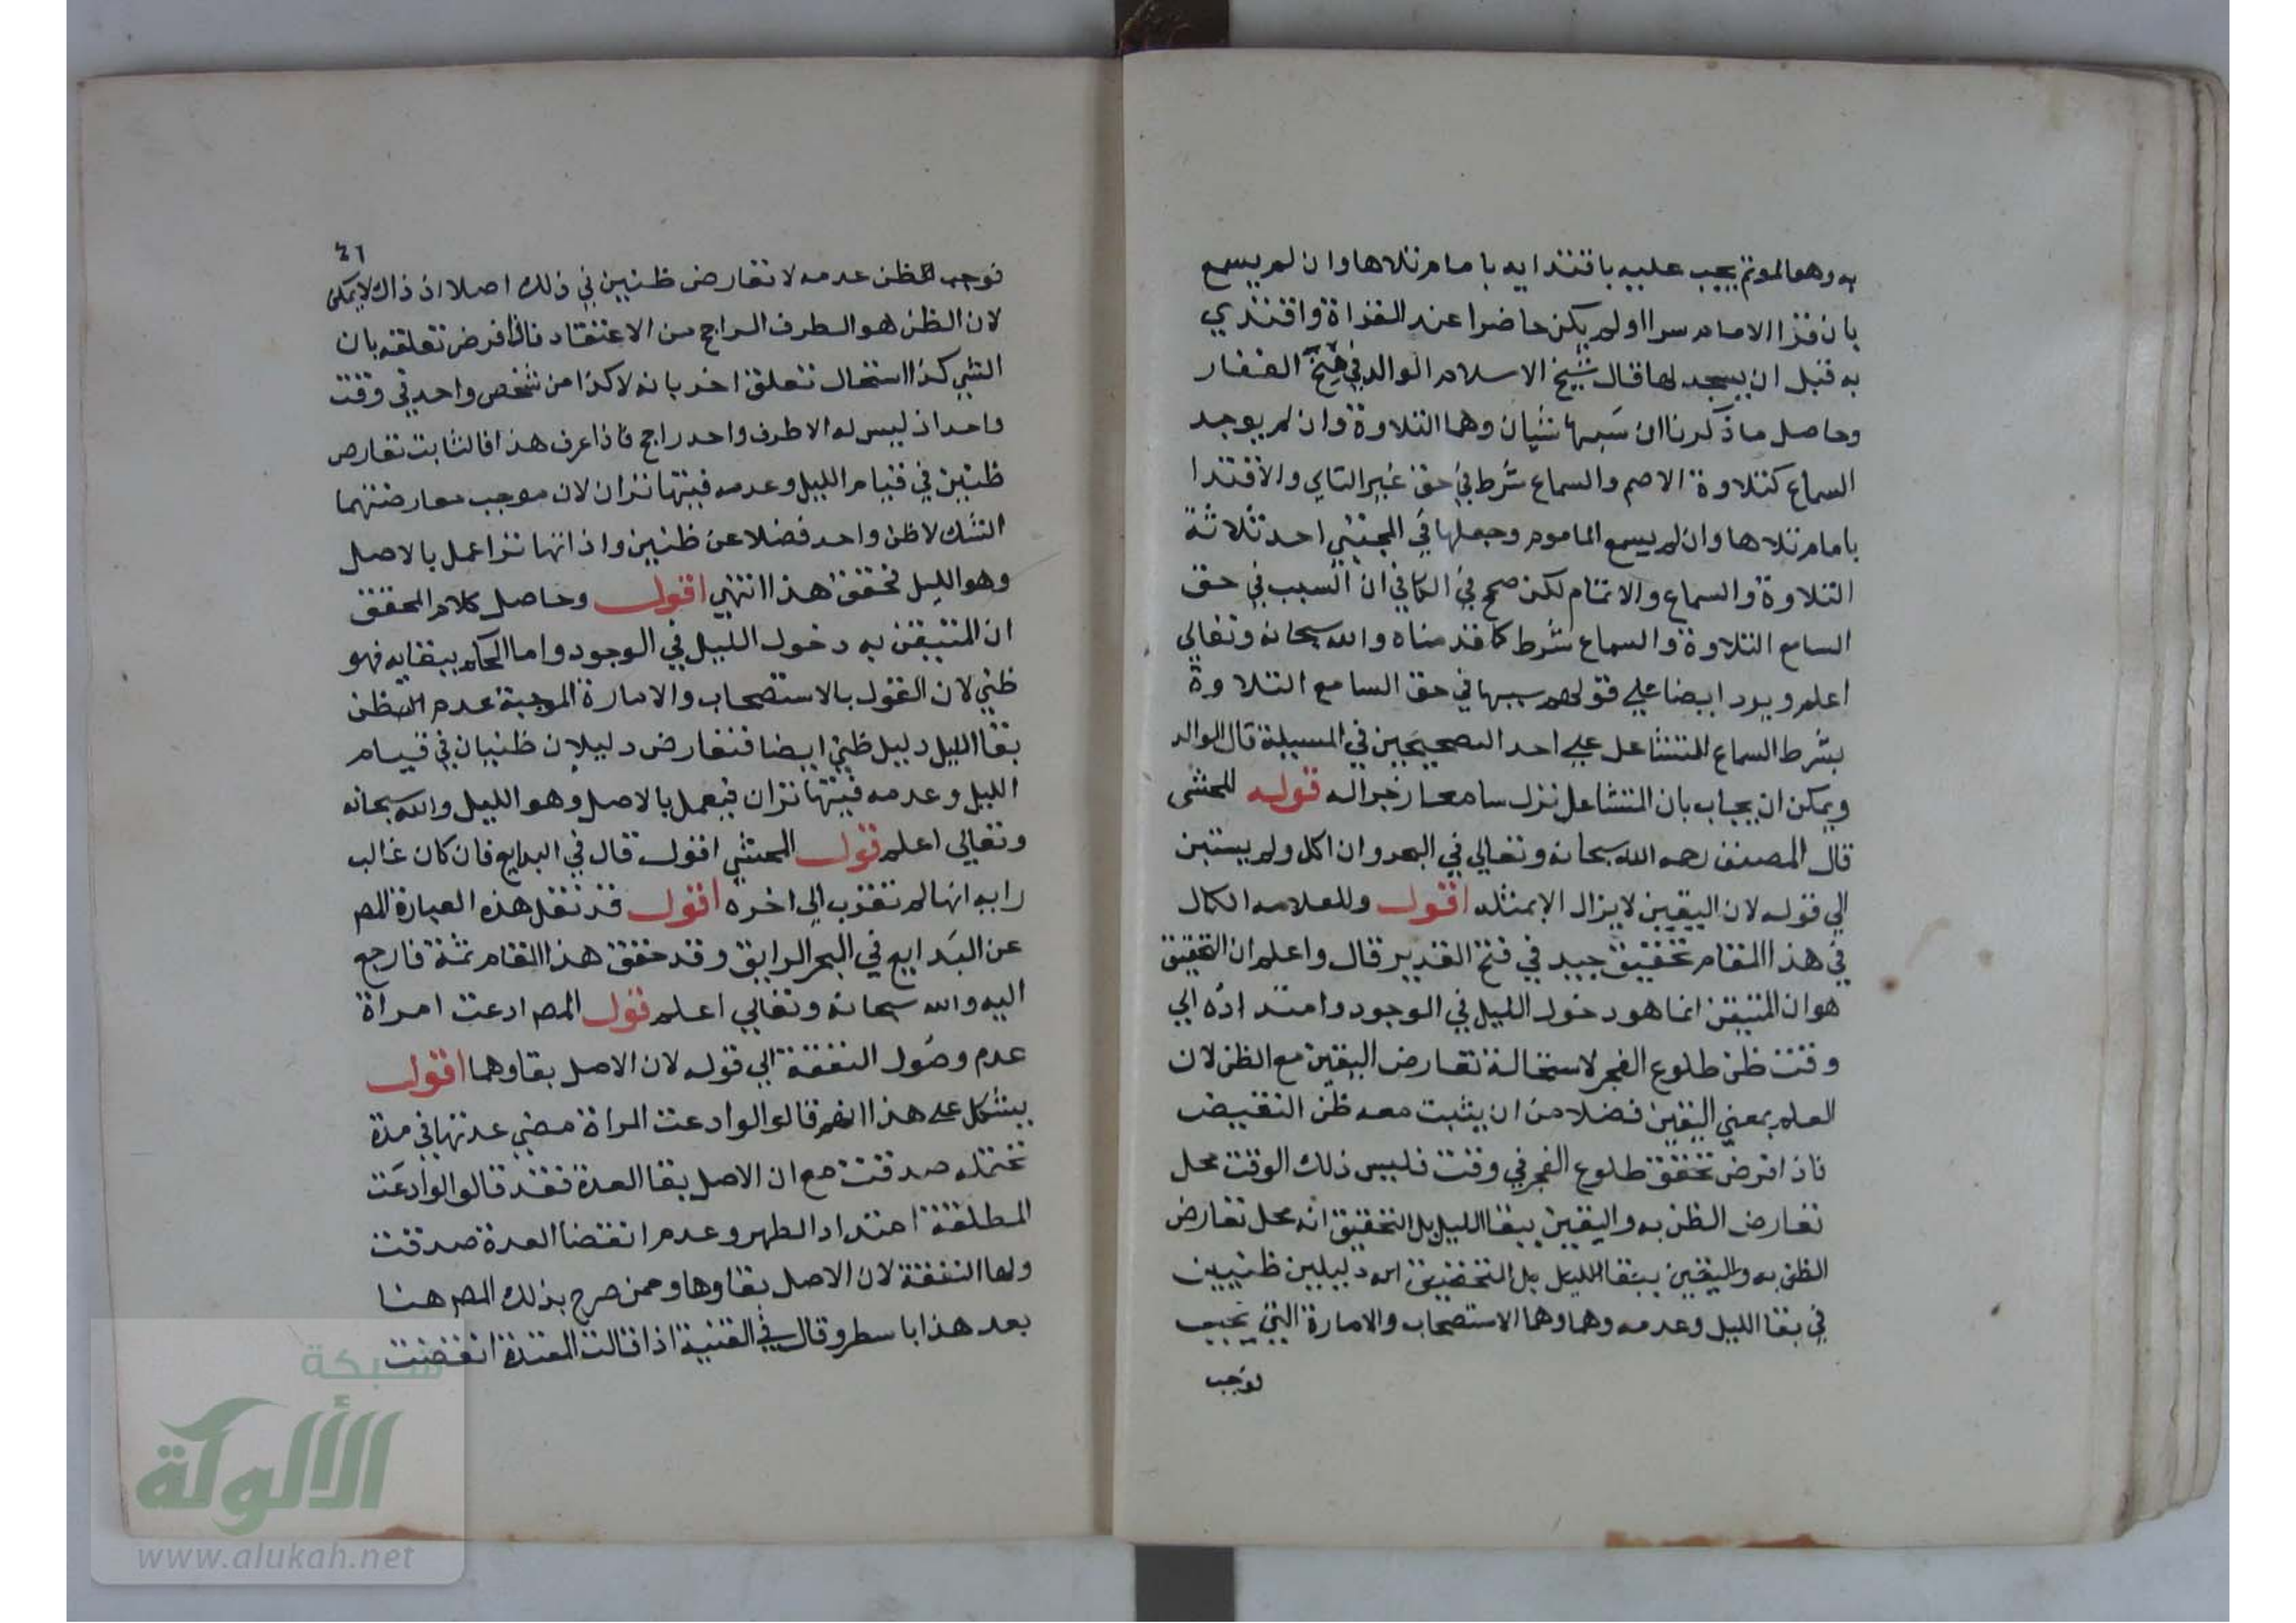 به وهو المؤتم يجب عليه باقتدايه بامام تلاها وان لم يسمع
بان قرا الامام سرا او لم يكن حاضرا عند القراة واقتدي
به قبل ان يسجد لها قال شيخ الاسلام الوالد في منح الغفار
وحاصل ما ذكرنا ان سببها شيان وهما التلاوة وان لم يوجد
السماع كتلاوة الاصم والسماع شرط في حق غير التالي والاقتدا
بامام تلاها وان لم يسمع الماموم وجعلها في المجتبي احد ثلاثة
التلاوة والسماع والائتمام لكن صحح في الكافي ان السبب في حق
السامع التلاوة والسماع شرط كما قدمناه والله سبحانه وتعالي
اعلم ويرد ايضا علي قولهم سببها في حق السامع التلاوة
بشرط السماع المتشاغل علي احد التصحيحين في المسيلة قال الوالد
ويمكن ان يجاب بان المتشاغل نزل سامعا زجرا له قوله للمحشى
قال المصنف رحمه الله سبحانه وتعالي في البحر وان اكل ولم يستبن
الي قوله لان اليقين لا يزال الا بمثله اقول وللعلامه الكمال
في هذا المقام تحقيق جيد في فتح القدير قال واعلم ان التحقيق
هو ان المتيقن انما هو دخول الليل في الوجود وامتداده الي
وقت ظن طلوع الفجر لاستحالة تعارض اليقين مع الظن لان
العلم بمعني اليقين فضلا من ان يثبت معه ظن النقيض
فاذا فرض تحقق طلوع الفجر في وقت فليس ذلك الوقت محل
تعارض الظن به واليقين ببقا الليل بل التحقيق انه محل تعارض
الظن به واليقين ببقا الليل بل التحقيق انه دليلين ظنيين
في بقا الليل وعدمه وهما وهما الاستصحاب والامارة التي بحيث
توجب
٤٦
توجب الظن عدمه لا تعارض ظنيين في ذلك اصلا اذ ذاك لا يمكن
لان الظن هو الطرف الراجح من الاعتقاد فاذا فرض تعلقه بان
الشي كذا استحال تعلق اخر بانه لا كذا من شخص واحد في وقت
واحد اذ ليس له الا طرف واحد راجح فاذا عرف هذا فالثابت تعارض
ظنيين في قيام الليل وعدمه فيتهاتران لان موجب معارضتهما
الشك لا ظن واحد فضلا عن ظنيين واذا تهاترا عمل بالاصل
وهو الليل فحقق هذا انتهي اقول وحاصل كلام المحقق
ان المتيقن به دخول الليل في الوجود واما الحكم ببقايه فهو
ظني لان القول بالاستصحاب والامارة الموجبة عدم الظن
بقا الليل دليل ظني ايضا فتعارض دليلان ظنيان في قيام
الليل وعدمه فيتهاتران فيعمل بالاصل وهو الليل والله سبحانه
وتعالي اعلم قول المحشي اقول قال في البدايع فان كان غالب
رايه انها لم تغرب الي اخره اقول قد نقل هذه العبارة المص
عن البدايع في البحر الرايق وقد حقق هذا المقام ثمة فارجع
اليه والله سبحانه وتعالي اعلم قول المص ادعت امراة
عدم وصول النفقة الي قوله لان الاصل بقاوهما اقول
يشكل علي هذا انهم قالوا لو ادعت المراة مضي عدتها في مدة
تحتمله صدقت مع ان الاصل بقا العدة فقد قالوا لو ادعت
المطلقة امتداد الطهر وعدم انقضا العدة صدقت
ولها النفقة لان الاصل بقاوها وممن صرح بذلك المص هنا
بعد هذا باسطر وقال في القنية اذا قالت المعتدة انقضت
شبكة
الألوكة
www.alukah.net